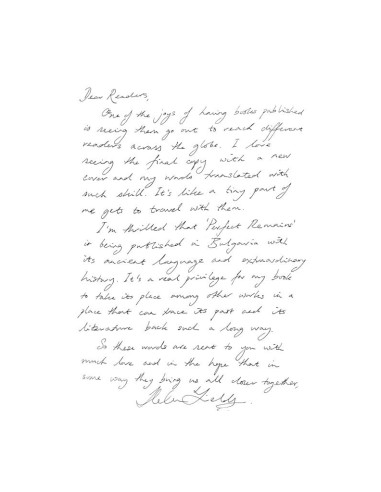 Dear Readers,
One of the joys of having books published
is seeing them go out to reach different
readers across the globe. I love
seeing the final copy with a new
cover and my words translated with
such skill. It's like a tiny part of
me gets to travel with them.
I'm thrilled that 'Perfect Remains'
is being published in Bulgaria with
its ancient language and extraordinary
history. It's a real privilege for my book
to take its place among other works in a
place that can trace its past and its
literature back such a long way.
So these words are sent to you with
much love and in the hope that in
some way they bring us all closer together,
Helen Fields.